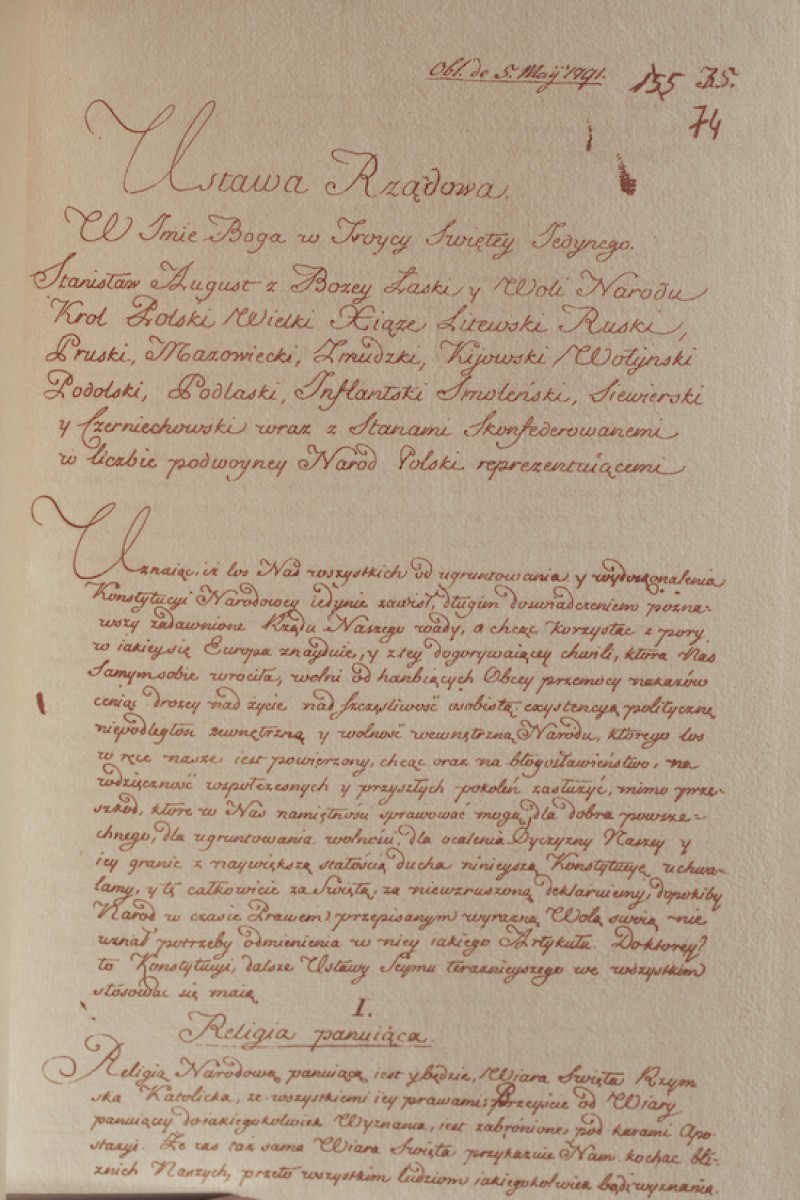 Obl. de 5. Maij 1791. 155 35.
74
Ustawa Rządowa.
W Imie Boga w Troycy Swiętey Jedynego.
Stanisław August z Bozey Łaski y Woli Narodu
Krol Polski Wielki Xiąze Litewski Ruski,
Pruski, Mazowiecki, Zmudzki, Kijowski Wołynski
Podolski, Podlaski, Inflantski Smoleński, Siewierski
y Czerniechowski wraz z Stanami Skonfederowanemi
w liczbie podwoyney Narod Polski reprezentuiącemi
Uznaiąc, iż los Nas wszystkich od ugruntowania y wydoskonalenia
Konstytucyi Narodowey iedynie zawisł, długim doswiadczeniem pozna-
wszy zadawnione Rządu Naszego wady, a chcąc korzystać z pory
w iakiey się Europa znayduie, y z tey dogorywaiącey chwili, która Nas
samym sobie wrocila, wolni od hanbiących Obcey przemocy nakazów
ceniąc drozey nad życie nad szczęsliwość osobistą exystencyą polityczną
niepodległosc zewnętrzną y wolność wewnętrzną Narodu, ktorego los
w ręce nasze iest powierzony, chcąc oraz na błogosławieństwo, na
wdzięczność wspołczesnych y przyszłych pokoleń zasłużyć, mimo prze-
szkod, ktore w Nas namiętnosci sprawować mogą, dla dobra powsze-
chnego, dla ugruntowania wolności, dla ocalenia Oyczyzny Naszey y
iey granic z naywiększą stałoscią ducha ninieyszą Konstytucyę uchwa-
lamy, y tę całkowicie za Swiętą, za niewzruszoną deklaruiemy, dopokiby
Narod w czasie Prawem przepisanym wyrazną Wolą swoią nie
uznał potrzeby odmienienia w niey iakiego Artykułu. Do ktorey
to Konstytucyi, dalsze Ustawy Seymu teraznieyszego we wszystkim
stosować się maią
I.
Religia panuiąca.
Religią Narodową panuiącą iest y będzie, Wiara Swięta Rzym
ska Katolicka, ze wszystkiemi iey prawami; Przeyscie od Wiary
panuiącey do iakiegokolwiek Wyznania, iest zabronione pod karami Apo-
stazyi. Ze zas taż sama Wiara Swięta przykazuie Nam kochać bli-
znich Naszych, przeto wszystkim ludziom iakiegokolwiek bądź wyznania